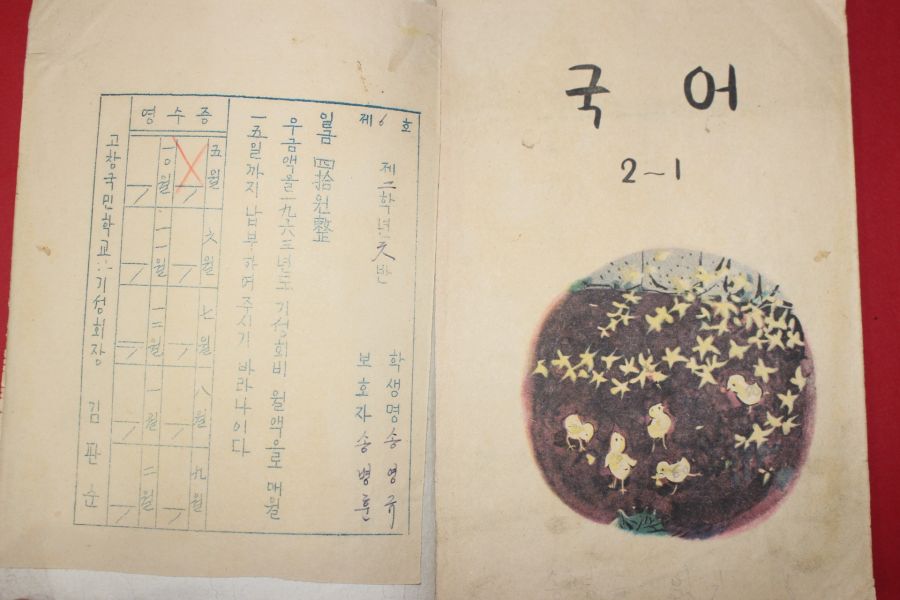 제6호
제二학년天반 학생명 송영규
보호자 송병훈
일금 四拾원整
우금액을 一九六三년도 기성회비 월액으로 매월
一五일까지 납부하여주시기 바라나이다
영수증
五월 六월 七월 八월 九월
一〇월 一一월 一二월 一월 二월
고창국민학교기성회장 김판순
국어
2~1